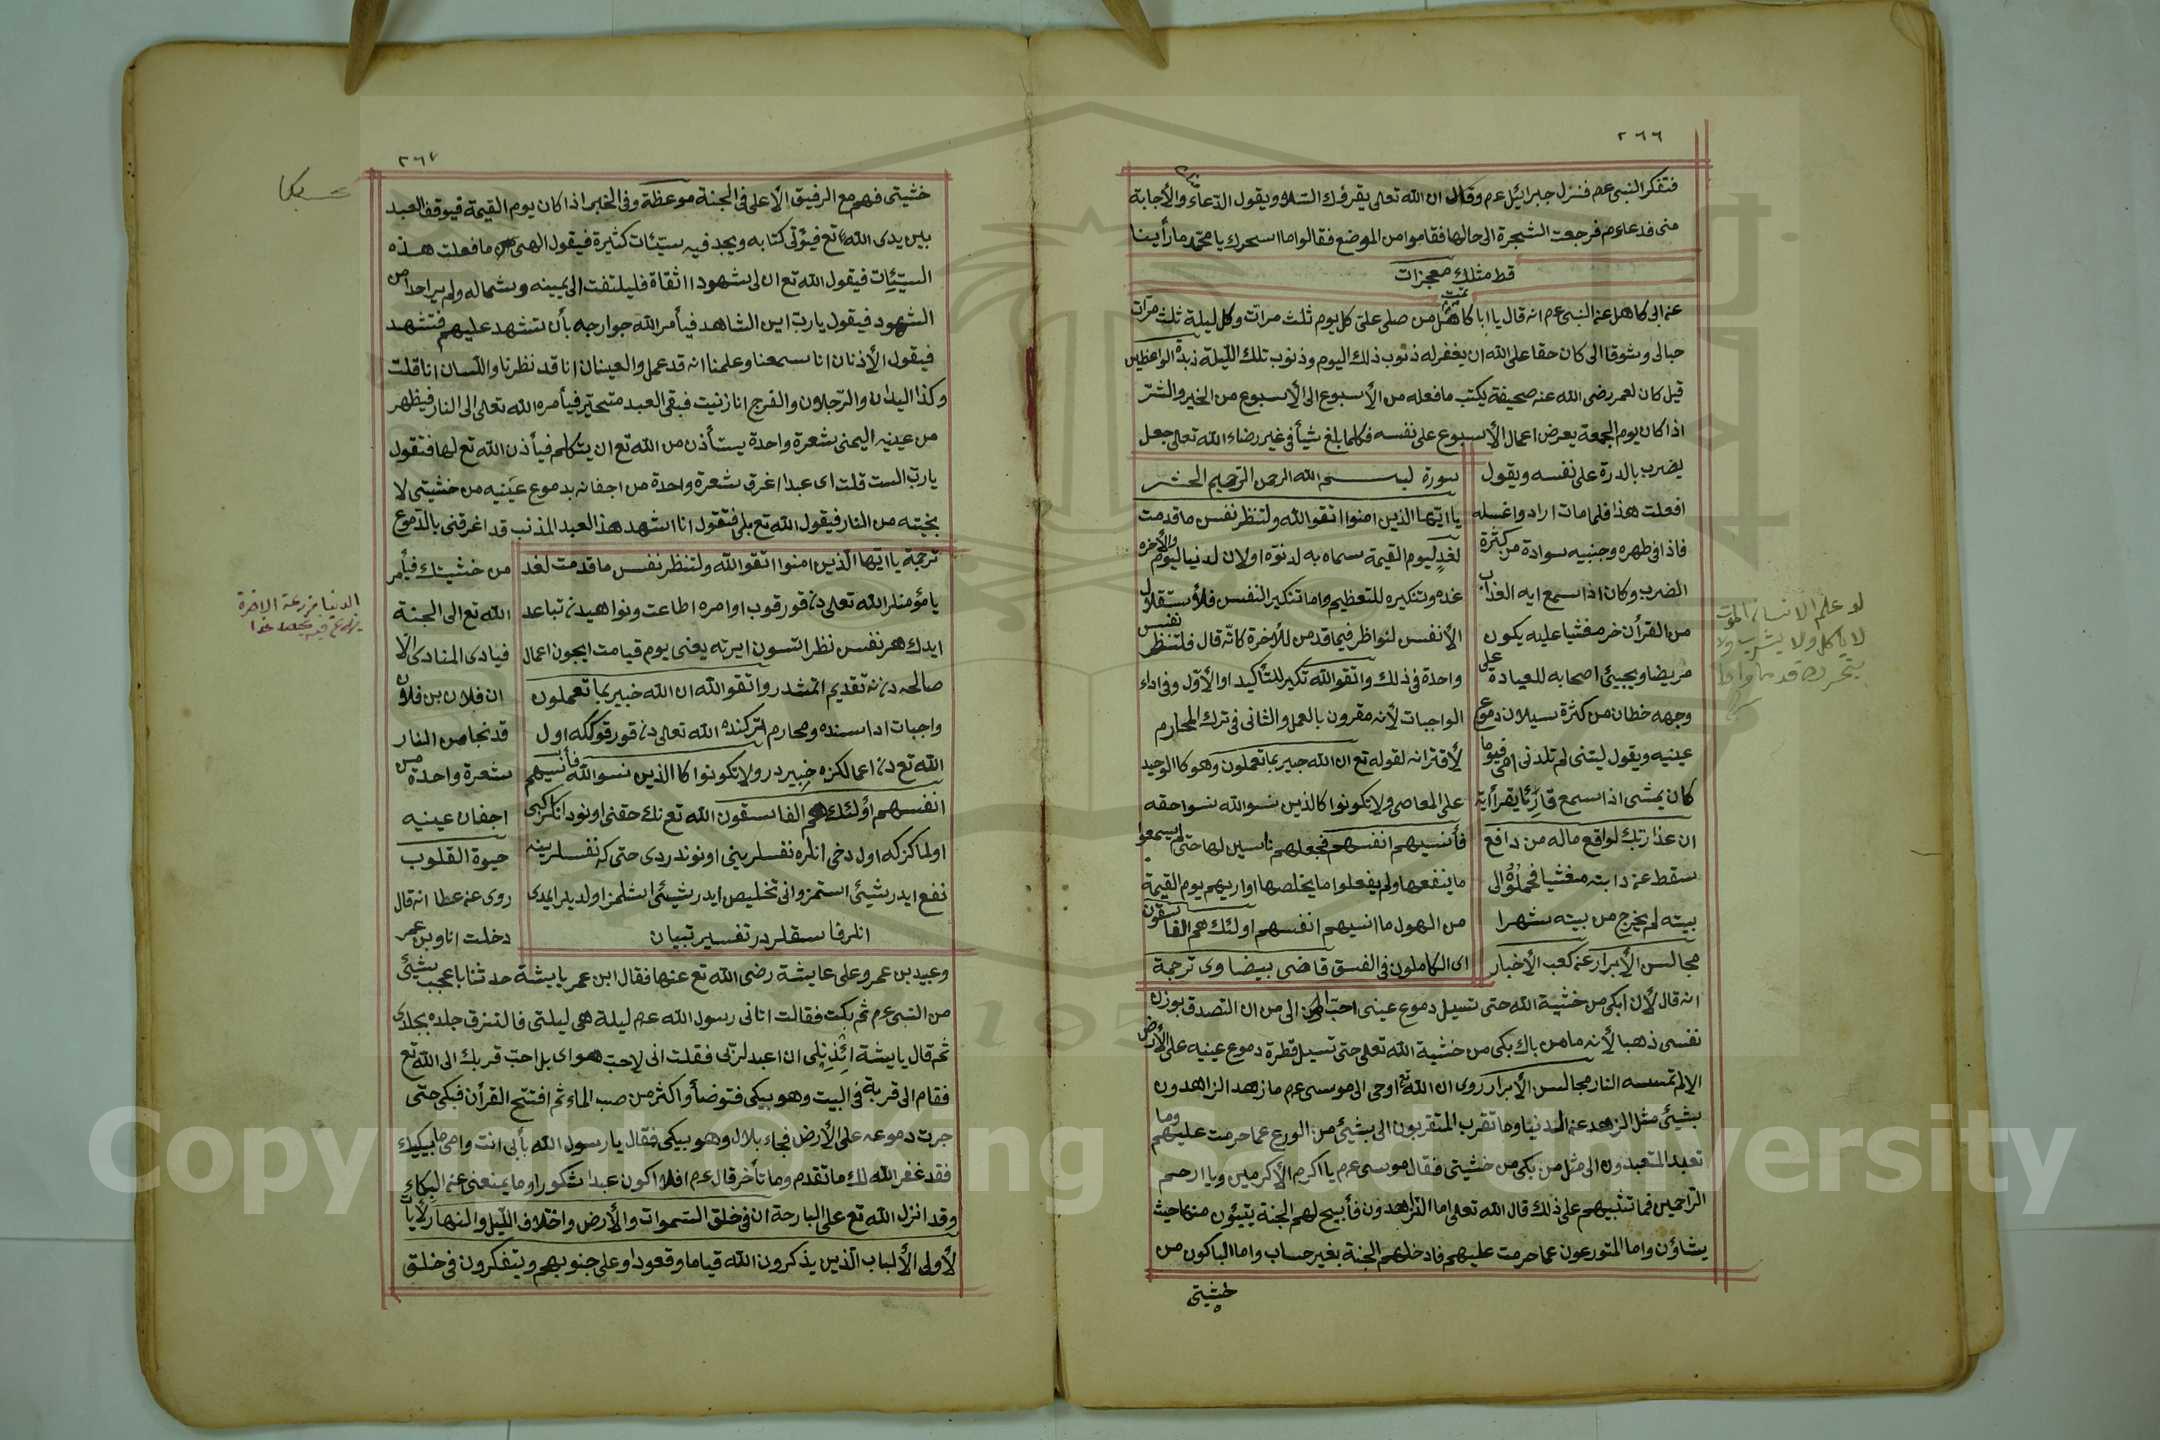 ٢٦٦
فتفكر النبى عم فنزل جبرائيل عم وقال ان الله تعالى يقرئك السلام ويقول الدعاء منك والأجابة
منى فدعا عم فرجعت الشجرة الى حالها فقاموا من الموضع فقالوا ما اسحرك يا محمد ما رأينا
قط مثلك معجزات
عن ابى كاهل عن النبى عم انه قال يا ابا كاهل من صلى على كل يوم ثلث مرات وكل ليلة ثلث مرات
حبا لى وشوقا الى كان حقا على الله ان يغفر له ذنوب ذلك اليوم وذنوب تلك الليلة زبدة الواعظين
قيل كان لعمر رضى الله عنه صحيفة يكتب ما فعله من الأسبوع الى الأسبوع من الخير والشر
اذا كان يوم الجمعة يعرض اعمال الأسبوع على نفسه فكلما بلغ شيأ فى غير رضاء الله تعالى جعل
يضرب بالدرة على نفسه ويقول
افعلت هذا فلما مات ارادوا غسله
فاذا فى ظهره وجنبيه سوادة من كثرة
الضرب وكان اذا سمع اية العذاب
من القرأن خر مغشيا عليه يكون
مريضا ويجيئ اصحابه للعيادة على
وجهه خطان من كثرة سيلان دموع
عينيه ويقول ليتنى لم تلدنى امى فيوما
كان يمشى اذا سمع قارئا يقرأ اية
ان عذاب ربك لواقع ماله من دافع
سقط عن دابته مغشيا فحملوه الى
بيته لم يخرج من بيته شهرا
مجالس الأبرار عن كعب الأخبار
سورة بسم الله الرحمن الرحيم الحشر
يا ايها الذين امنوا اتقوا الله ولتنظر نفس ما قدمت
لغد ليوم القيمة سماه به لدنوه او لان لدنيا ليوم والأخره
غده وتنكيره للتعظيم واما تنكير النفس فلأستقلال
الأنفس لنواظر فيما قدمن للأخرة كأنه قال فلتنظر نفس
واحدة فى ذلك واتقوا الله تكرير للتأكيد او الأول فى اداء
الواجبات لأنه مقرون بالعمل والثانى فى ترك المحارم
لأقترانه لقوله تع ان الله خبير بما تعملون وهو كالوعيد
على المعاصى ولا تكونوا كالذين نسوا الله نسوا حقه
فأنسيهم انفسهم فجعلهم ناسين لها حتى لم يسمعوا
ما ينفعها ولم يفعلوا ما يخلصها او اريهم يوم القيمة
من الهول ما انسيهم انفسهم اولئك هم الفاسقون
اى الكاملون فى الفسق قاضى بيضاوى ترجمة
انه قال لأن ابكى من خشية الله حتى تسيل دموع عينى احب الى من ان التصدق بوزن
نفسى ذهبا لأنه ما من باك بكى من خشية الله تعالى حتى تسيل قطرة دموع عينيه على الأرض
الا لم تمسسه النار مجالس الأبرار روى ان الله تع اوحى الى موسى عم ما زهد الزاهدون
بشيئ مثل الزهد عن الدنيا وما تقرب المتقربون الى بشيئ من الورع عما حرمت عليهم وما
تعبد المتعبدون الى مثل من بكى من خشيتى فقال موسى عم يا اكرم الأكرمين ويا ارحم
الراحمين فما تثيبهم على ذلك قال الله تعالى اما الزاهدون فأبيح لهم الجنة يتبئون منها حيث
يشاؤن واما المتورعون عما حرمت عليهم فادخلهم الجنة بغير حساب واما الباكون من
خشيتى
لو علم الانسان الموت
لا ياكل ولا يشرب ولا
٢٦٧
خشيتى فهم مع الرفيق الأعلى فى الجنة موعظة وفى الخبر اذا كان يوم القيمة فيوقف العبد
بين يدى الله تع فيؤتى كتابه ويجد فيه سيئات كثيرة فيقول الهى ما فعلت هذه
السيئات فيقول الله تع ان لى شهودا اثقاة فليلتفت الى يمينه وشماله ولم ير احدا من
الشهود فيقول يارب اين الشاهد فيأمر الله جوارحه بأن تشهد عليهم فتشهد
فيقول الأذنان انا سمعنا وعلمنا انه قد عمل والعينان انا قد نظرنا واللسان انا قلت
وكذا اليدان والرجلان والفرج انا زنيت فبقى العبد متحيرا فيأمره الله تعالى الى النار فيظهر
من عينيه اليمنى شعرة واحدة يستأذن من الله تع ان يتكلم فيأذن الله تع لها فتقول
يا رب الست قلت اى عبد اغرق شعرة واحدة من اجفانه بدموع عينيه من خشيتى لا
نجيته من النار فيقول الله تع بلى فتقول انا اشهد هذا العبد المذنب قد اغرقنى بالدموع
من خشيتك فيأمر
الله تع الى الجنة
فيادى المنادى الا
ان فلان بن فلان
قد نجا من النار
بشعرة واحدة من
اجفان عينيه
حيوة القلوب
روى عن عطا انه قال
دخلت انا وبن عمر
ترجمة يا ايها الذين امنوا اتقوا الله ولتنظر نفس ما قدمت لغد
يا مؤمنلر الله تعالى دن قورقوب اوامره اطاعت ونواهيدن تباعد
ايدك هر نفس نظر اتسون ايرته يعنى يوم قيامت ايجون اعمال
صالحه دن نه تقديم اتمشدر واتقوا الله ان الله خبير بما تعملون
واجبات اداسنده ومحارم تركنده الله تعالى دن قورقوككه اول
الله تع دن اعمالكزه خبيردر ولا تكونوا كالذين نسوا الله فأنسيهم
انفسهم اولئك هم الفاسقون الله تع نك حقنى اونودانلر كبى
اولماكز كه اول دخى انلره نفسلرينى اونوتدردى حتى كه نفسلرينه
نفع ايدر شيئى استمز وانى تخليص ايدر شيئى اشلمز اولديلر ايمدى
انلر فاسقلردر تفسير تبيان
وعبيد بن عمر وعلى عايشة رضى الله تع عنها فقال ابن عمر يا يشة حدثنا باعجب بشيئ
من النبى عم ثم بكت فقالت اتانى رسول الله عم ليلة هى ليلتى فالتزق جلده بجلدى
ثم قال يا يشة ائذنى لى ان اعبد لربى فقلت انى لاحب هواى بل احب قربك الى الله تع
فقام الى قربة فى البيت وهو يبكى فتوضأ واكثر من صب الماء ثم افتتح القرأن فبكى حتى
جرت دموعه على الأرض فجاء بلال وهو يبكى فقال يا رسول الله بأبى انت وامى ما يبكيك
فقد غفر الله لك ما تقدم وما تأخر قال عم افلا اكون عبدا شكورا وما يمنعنى عن البكاء
وقد انزل الله تع على البارحة ان فى خلق السموات والأرض واختلاف الليل والنهار لأيات
لأولى الألباب الذين يذكرون الله قياما وقعودا وعلى جنوبهم ويتفكرون فى خلق
الدنيا مزرعة الاخرة
Copyright © King Saud University